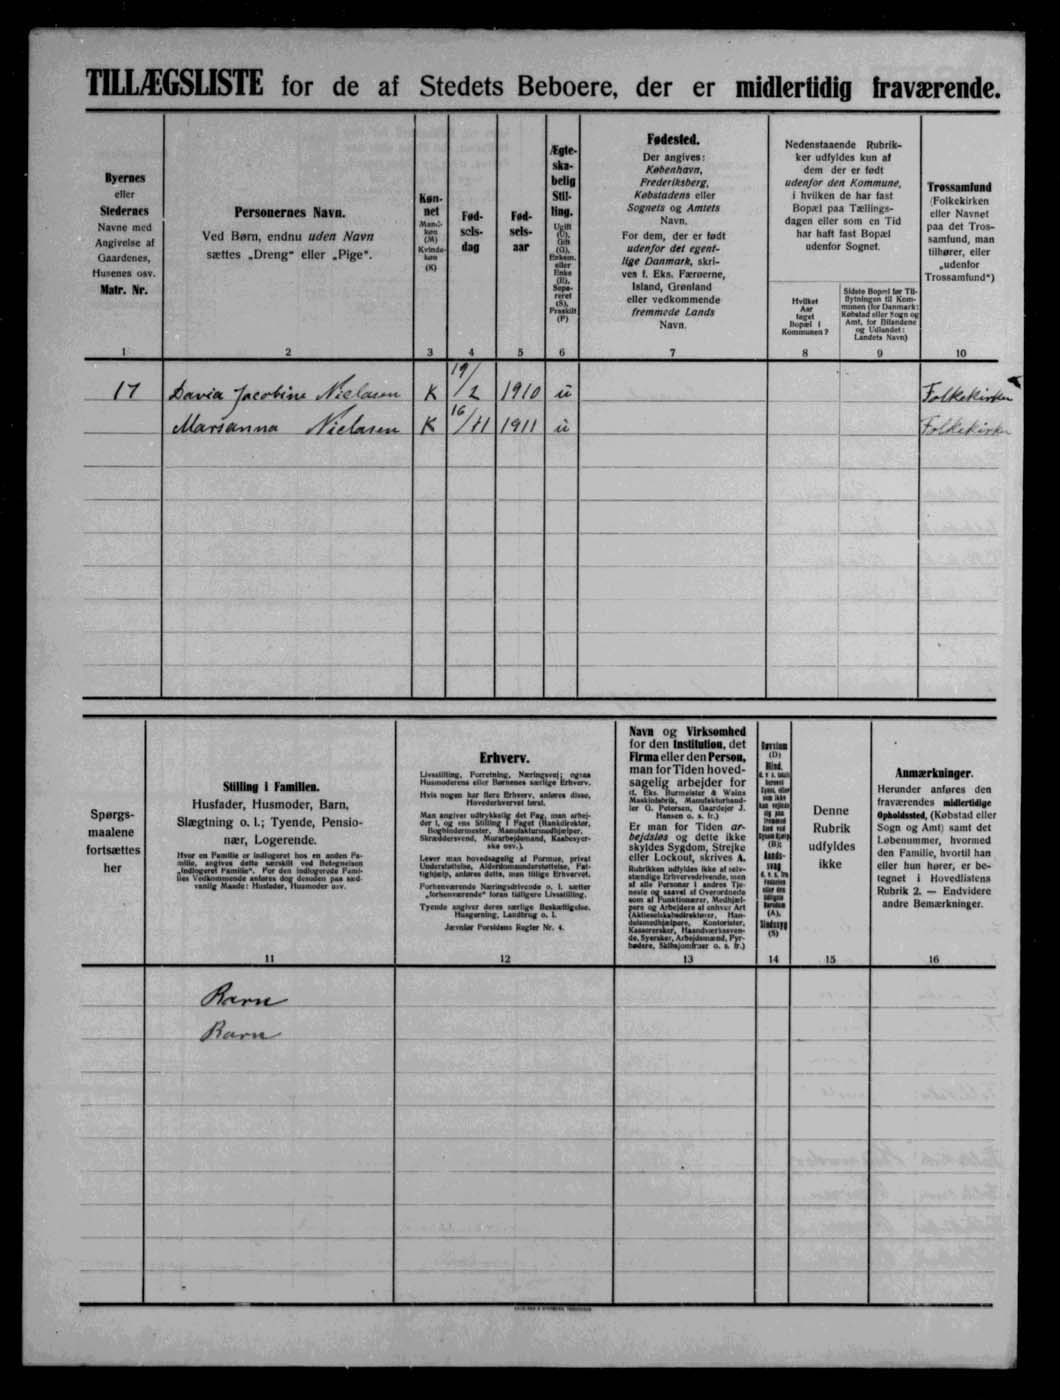 TILLÆGSLISTE for de af Stedets Beboere, der er midlertidig fraværende.
Byernes
eller
Stedernes
Navne med
Angivelse af
Gaardenes,
Husenes osv.
Matr. Nr.
Personernes Navn.
Ved Børn, endnu uden Navn
sættes „Dreng" eller „Pige".
Køn-
net
Mand-
køn
(M)
Kvinde-
køn
(K)
Fød-
sels-
dag
Fød-
sels-
aar
Ægte-
ska-
belig
Stil-
ling.
Ugift
(U),
Gift
(G),
Enkem.
eller
Enke
(E),
Sepa-
reret
(S),
Fraskilt
(F)
Fødested.
Der angives:
København,
Frederiksberg,
Købstadens eller
Sognets og Amtets
Navn.
For dem, der er født
udenfor det egent-
lige Danmark, skri-
ves f. Eks. Færøerne,
Island, Grønland
eller vedkommende
fremmede Lands
Navn.
Nedenstaaende Rubrik-
ker udfyldes kun af
dem der er født
udenfor den Kommune,
i hvilken de har fast
Bopæl paa Tællings-
dagen eller som en Tid
har haft fast Bopæl
udenfor Sognet.
Hvilket
Aar
taget
Bopæl i
Kommunen?
Sidste Bopæl før Til-
flytningen til Kom-
munen (for Danmark:
Købstad eller Sogn og
Amt, for Bilandene
og Udlandet:
Landets Navn)
Trossamfund
(Folkekirken
eller Navnet
paa det Tros-
samfund, man
tilhører, eller
„udenfor
Trossamfund")
1 2 3 4 5 6 7 8 9 10
17 Davia Jacobine Nielasen K 19/2 1910 ü Folkekirken
Marsanna Nielasen K 16/11 1911 ü Folkekirken
Spørgs-
maalene
fortsættes
her
Stilling i Familien.
Husfader, Husmoder, Barn,
Slægtning o. l.; Tyende, Pensio-
nær, Logerende.
Hvor en Familie er indlogeret hos en anden Fa-
milie, angives dette særskilt ved Betegnelsen
„indlogeret Familie". For den indlogerede Fami-
lies Vedkommende anføres dog desuden paa sæd-
vanlig Maade: Husfader, Husmoder osv.
Erhverv.
Livsstilling, Forretning, Næringsvej; ogsaa
Husmoderens eller Børnenes særlige Erhverv.
Hvis nogen har flere Erhverv, anføres disse,
Hovederhvervet først.
Man angiver udtrykkelig det Fag, man arbej-
der i, og ens Stilling i Faget (Bankdirektør,
Bogbindermester, Manufakturmedhjælper,
Skræddersvend, Murarbejdsmand, Kaabesyer-
ske osv.).
Lever man hovedsagelig af Formue, privat
Understøttelse, Alderdomsunderstøttelse, Fat-
tighjælp, anføres dette, man tillige Erhvervet.
Forhenværende Næringsdrivende o. l. sætter
„forhenværende" foran tidligere Livsstilling.
Tyende angiver deres særlige Beskæftigelse,
Husgerning, Landbrug o. l.
Jævnfør Forsidens Regler Nr. 4.
Navn og Virksomhed
for den Institution, det
Firma eller den Person,
man for Tiden hoved-
sagelig arbejder for
(f. Eks. Burmeister & Wains
Maskinfabrik, Manufakturhand-
ler G. Petersen, Gaardejer J.
Hansen o. s. fr.)
Er man for Tiden ar-
bejdsløs og dette ikke
skyldes Sygdom, Strejke
eller Lockout, skrives A.
Rubrikken udfyldes ikke af selv-
stændige Erhvervsdrivende, men
af alle Personer i andres Tje-
neste og saavel af Overordnede
som af Funktionærer, Medhjæl-
pere og Arbejdere af enhver Art
(Aktieselskabsdirektører, Han-
delsmedhjælpere, Kontorister,
Kassererske, Haandværkssven-
de, Syersker, Arbejdsmænd, Fyr-
bødere, Skibsjomfruer o. s. fr.)
Denne
Rubrik
udfyldes
ikke
Anmærkninger.
Herunder anføres den
fraværendes midlertidige
Opholdssted, (Købstad eller
Sogn og Amt) samt det
Løbenummer, hvormed
den Familie, hvortil han
eller hun hører, er be-
tegnet i Hovedlistens
Rubrik 2. — Endvidere
andre Bemærkninger.
11 12 13 14 15 16
Barn
Barn